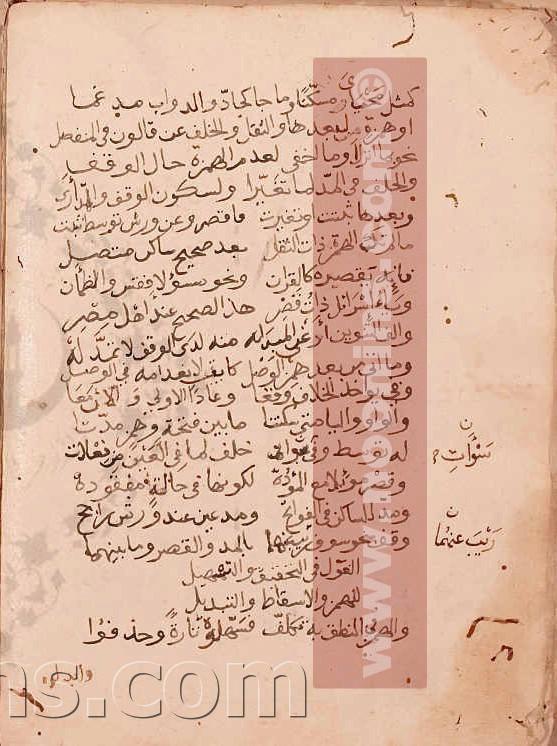 كمثل محياي مسكنا وما جا كحاد والدواب مدغما
او همزة من بعدها والنقل والخلف عن قالون في المنفصل
نحو بما انزل وما اخفي لعدم الهمزة حال الوقف
والخلف في المد لما تغيرا ولسكون الوقف والمد أرى
وبعدها ثبتت او تغيرت فاقصر وعن ورش توسط ثبت
ما لم تك الهمزة ذات الثقل بعد صحيح ساكن متصل
فإنه يقصره كالقرآن ونحو مسؤلا فقس والظمآن
وياء إسرائيل ذات قصر هذا الصحيح عند اهل مصر
والف التنوين أعني المبدله منه لدى الوقف لا تمد له
وما اتى من بعد همز الوصل كايت لانعدامه في الوصل
وفي يؤاخذ الخلاف وقعا وعادا الاولى و الان معا
والواو والياء متى سكنتا ما بين فتحة وهمز مدتا
له توسطا وفي سوآت خلف لما في العين من فعلات
وقصر موئلا مع الموءودة لكونها في حالة مفقوده
ومد للساكن في الفواتح ومد عين عند ورش راجح
وقف بنحو سوف ريب عنهما بالمد والقصر وما بينهما
القول في التحقيق والتسهيل
للهمز والاسقاط والتبديل
والهمز في النطق به تكلف فسهلوه تارة وحذفوا
سوآت
ريب عنهما
وابدلوه
www.noormags.com